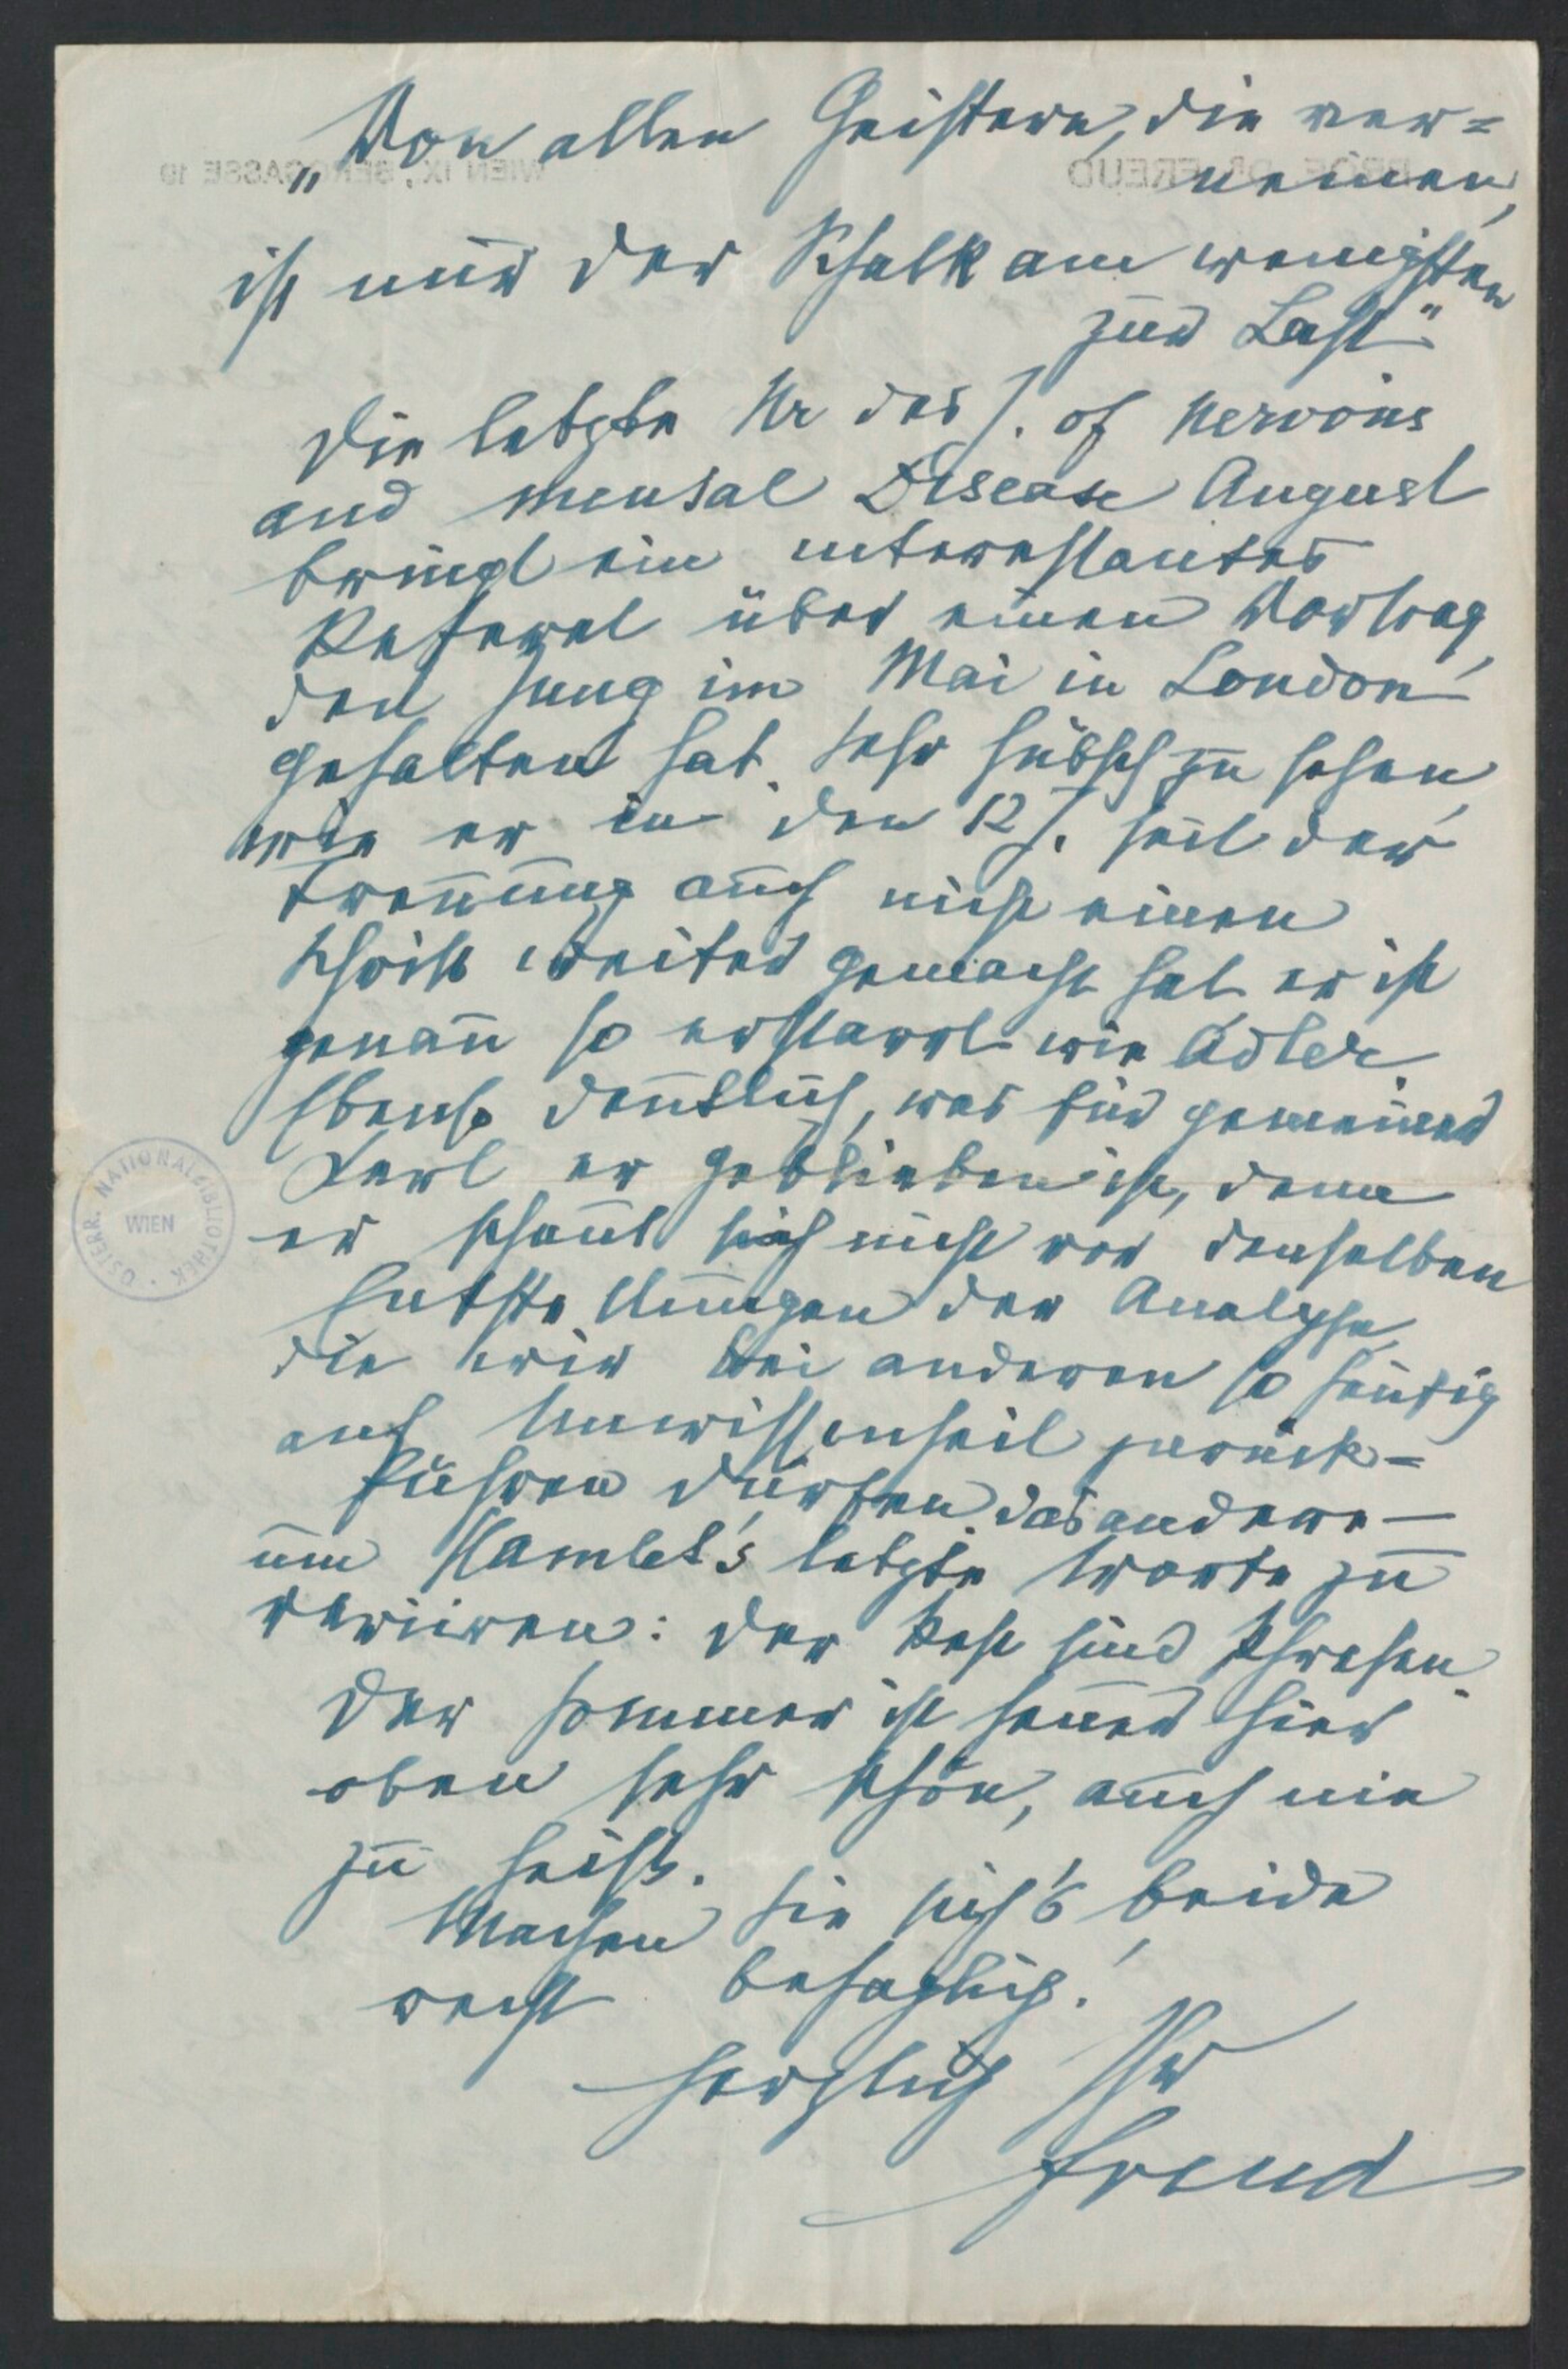 „Von allen Geistern, die ver=
neinen,
ist mir der Schalk am wenigsten
zur Last“.
Die letzte Nr des J. of Nervous
and mental Disease August
bringt ein interessantes
Referat über einen Vortrag,
den Jung im Mai in London
gehalten hat. Sehr hübsch zu sehen,
wie er in den 12 J. seit der
Trennung auch nicht einen
Schritt weiter gemacht hat. er ist
genau so erstarrt wie Adler
Ebenso deutlich, was für gemeiner
Kerl er geblieben ist, denn
er scheut sich nicht vor denselben
Entstellungen der Analyse,
die wir bei anderen so häufig
auf Unwissenheit zurück-
führen dürfen. das andere —
um Hamlet's letzte Worte zu
variiren: der Rest sind Phrasen.
Der Sommer ist heuer hier
oben sehr schön, auch nie
zu heiß.
Machen Sie sich's beide
recht behaglich!
Herzlich Ihr
Freud
PROF. DR. FREUD
WIEN IX., BERGGASSE 19
ÖSTERR. NATIONALBIBLIOTHEK
WIEN